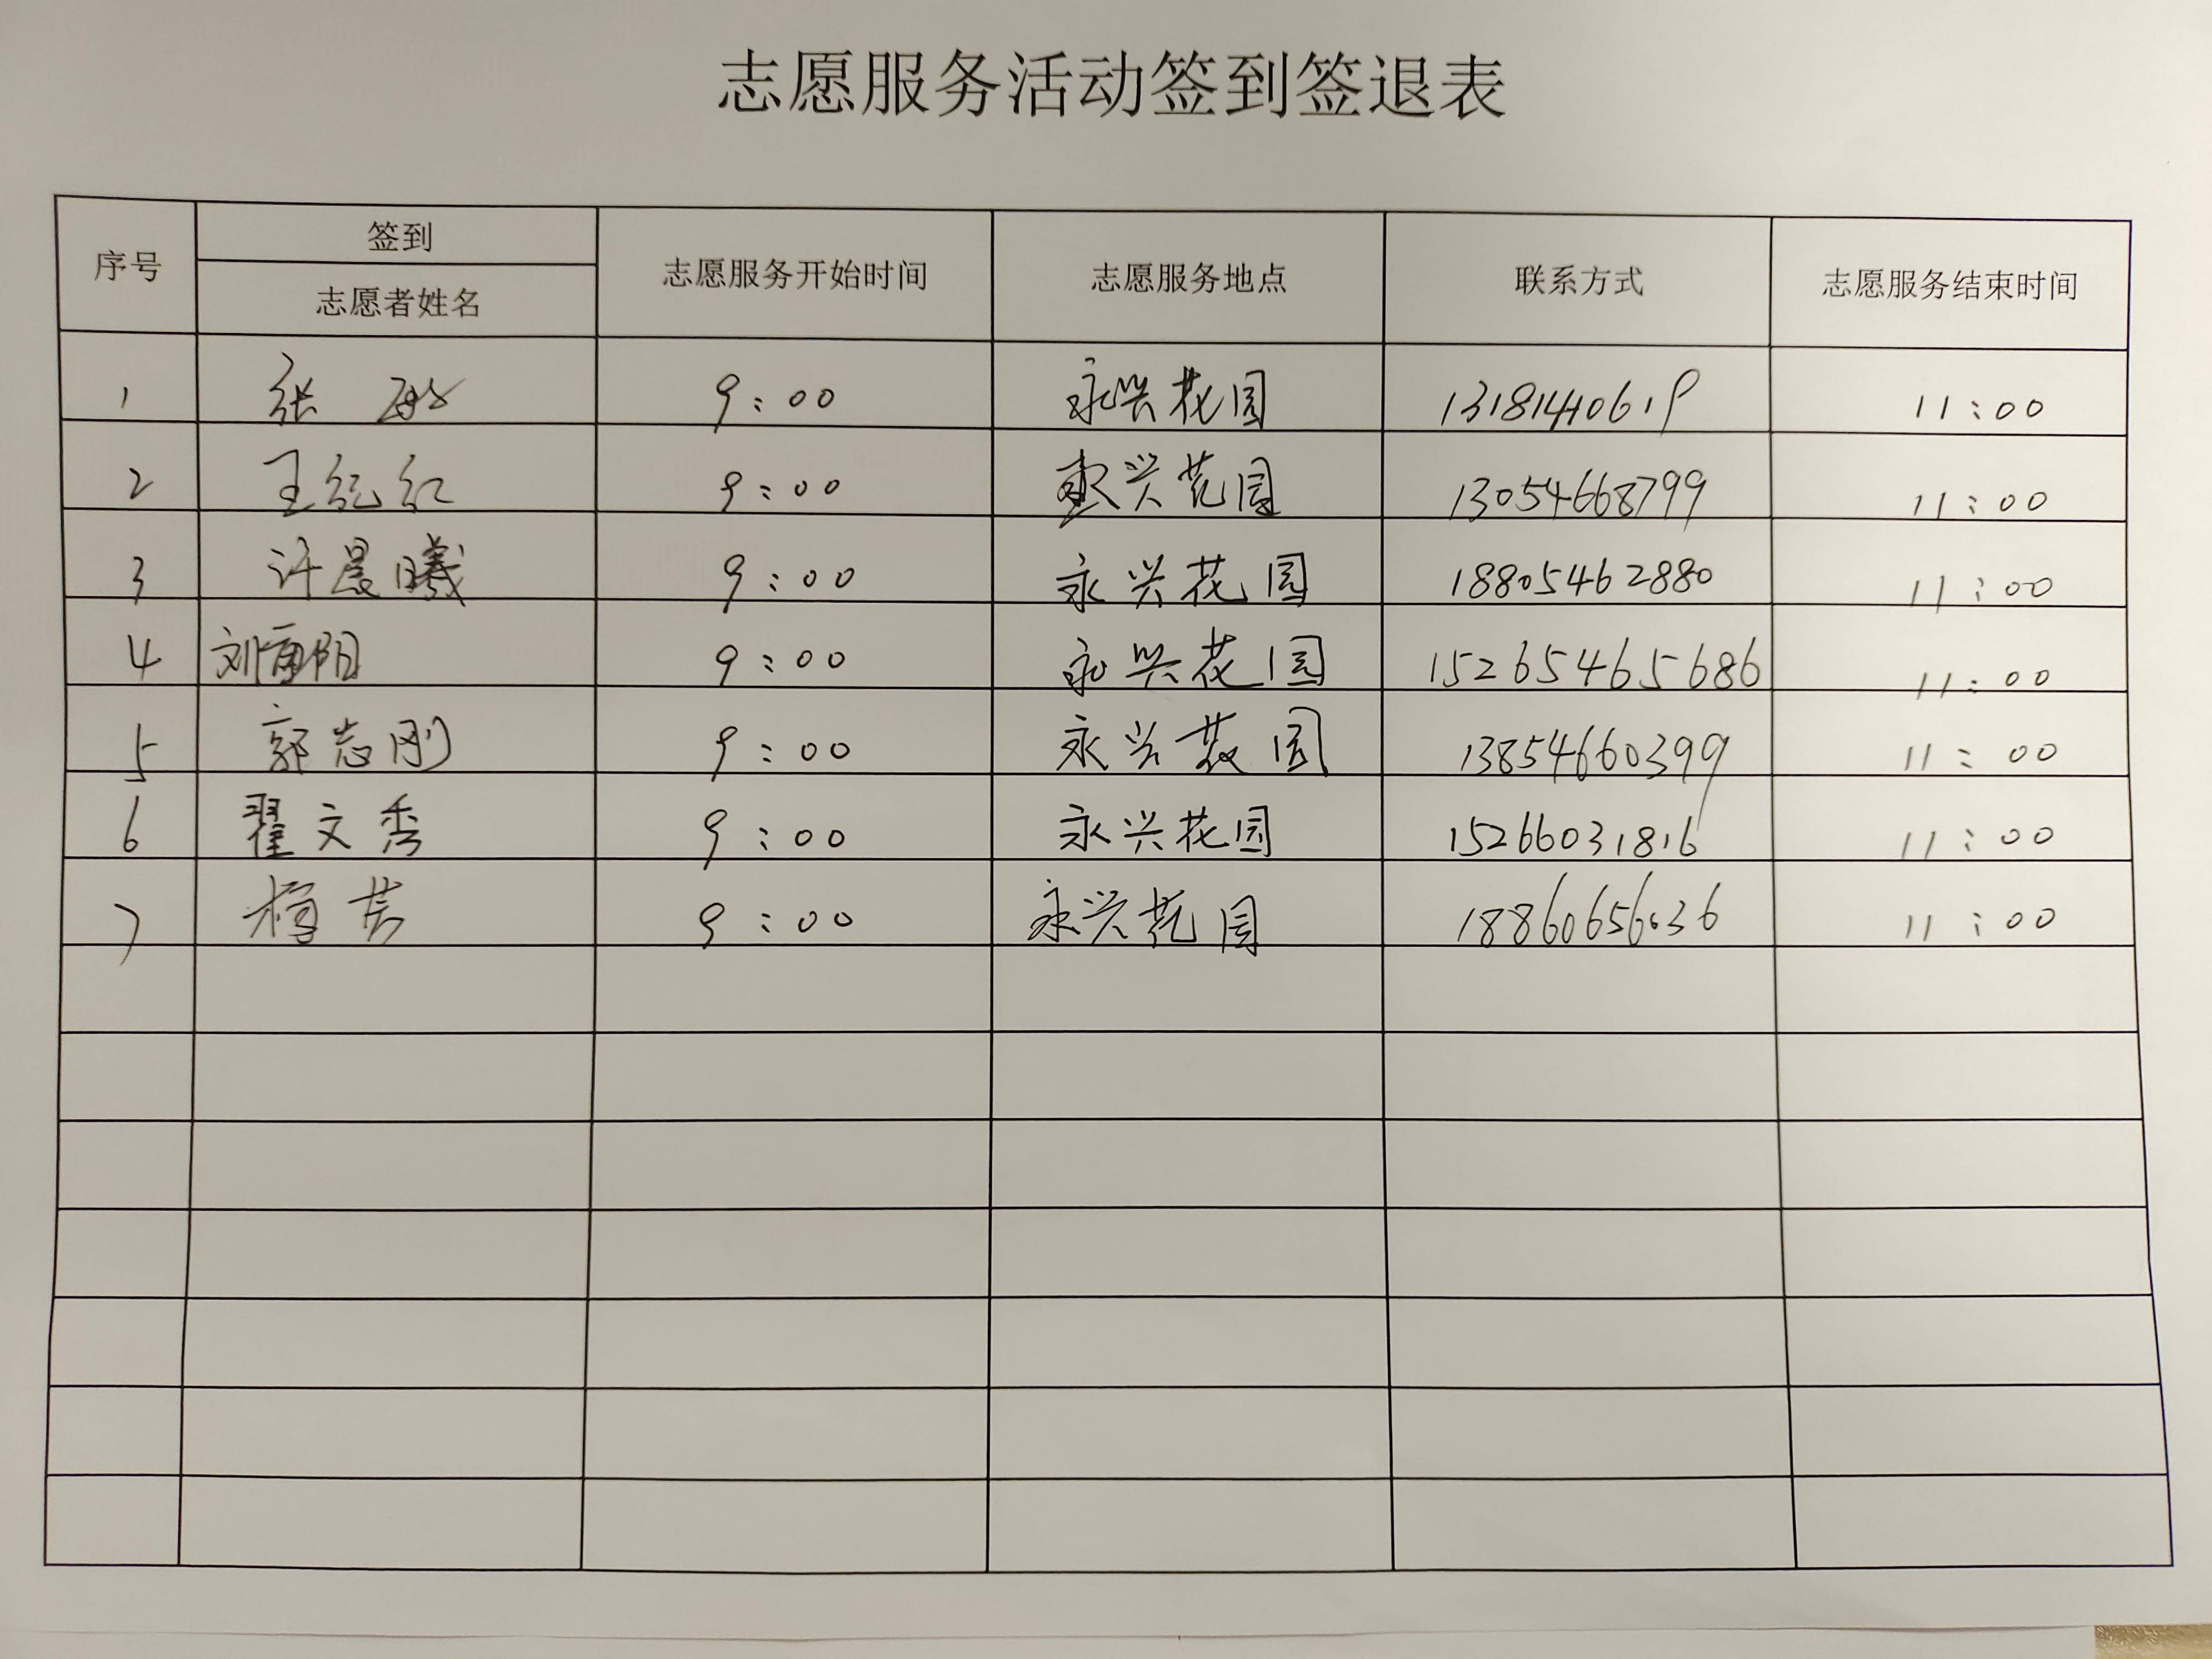 志愿服务活动签到签退表
序号 签到 志愿者姓名 志愿服务开始时间 志愿服务地点 联系方式 志愿服务结束时间
1 张敏 9:00 永兴花园 13181440619 11:00
2 王纪红 9:00 永兴花园 13054668799 11:00
3 许晨曦 9:00 永兴花园 18805462880 11:00
4 刘 阳 9:00 永兴花园 15265465686 11:00
5 郭志刚 9:00 永兴花园 13854660399 11:00
6 翟文秀 9:00 永兴花园 15266031816 11:00
7 9:00 永兴花园 18860656036 11:00